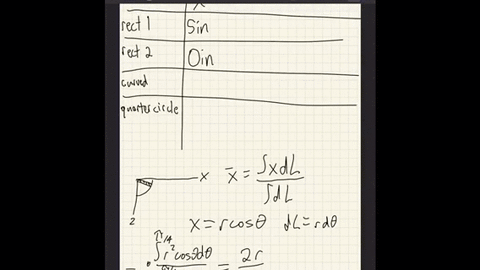 x
rect 1 5in
rect 2 0in
curved
quarter circle
x x̄ = ∫xdL / ∫dL
z
x = rcosθ dL = rdθ
= ∫r²cosθdθ = 2r